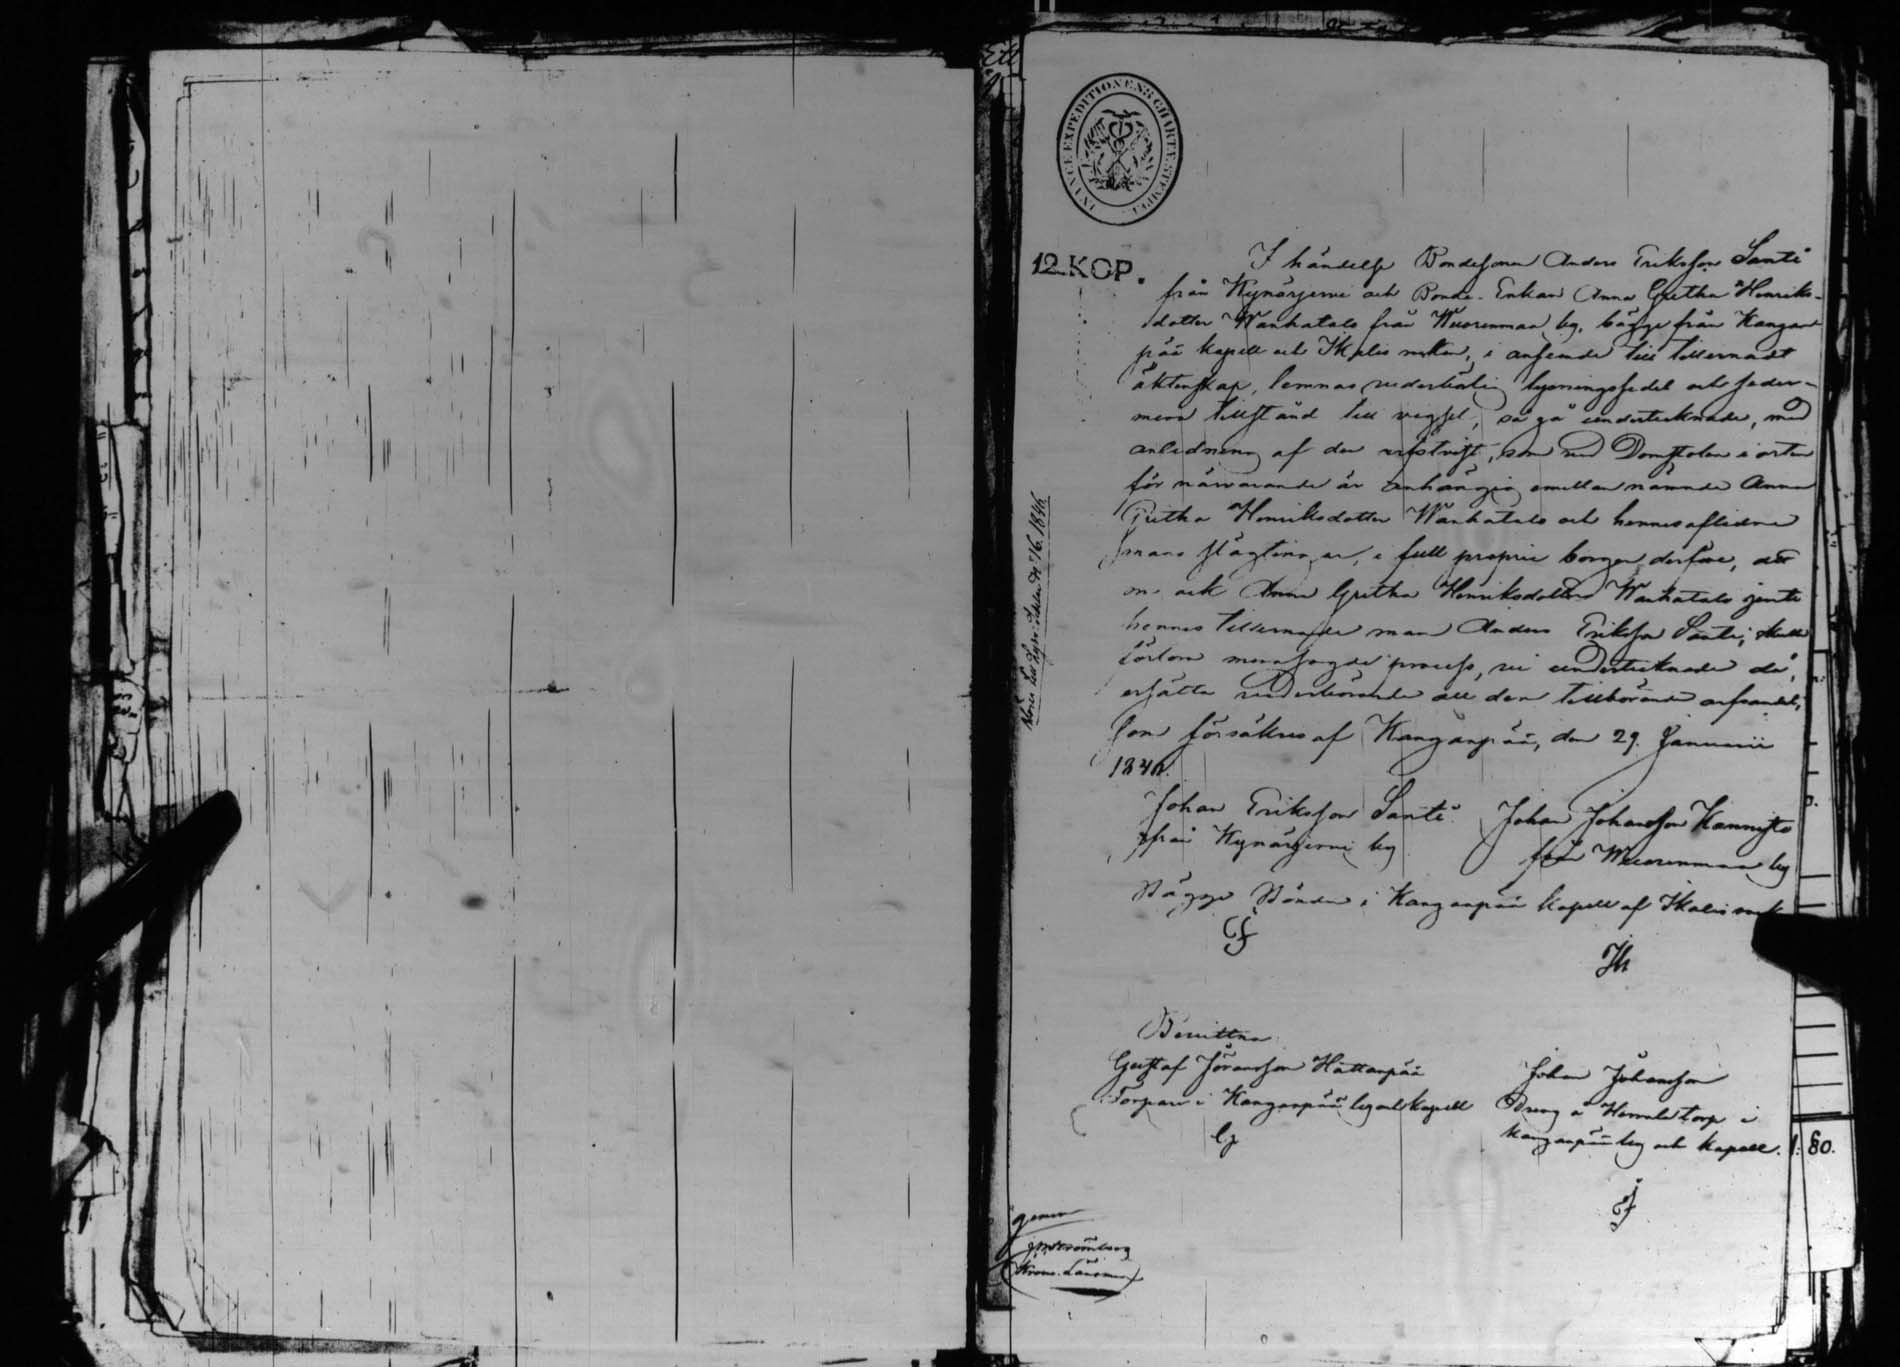 FINANCE EXPEDITIONENS CHARTÆ STEMPEL
12. KOP.
I händelse Bondesonen Anders Eriksson Santi
från Kynäsjerwi och Bonde-Enkan Anna Gretha Henriks-
dotter Wanhatalo från Wuorenmaa by, bägge från Kangan-
pää kapell och Ikalis socken, i anseende till tillernadt
äktenskap, lemnas vederbörlig lysningssedel och seder-
mera tillstånd till vigsel, så gå undertecknade, med
anledning af den rättstvist, som vid Domstolen i orten
för närvarande är anhängig emellan nämnde Anna
Gretha Henriksdotter Wanhatalo och hennes aflidne
mans slägtingar, i full proprie borgen derföre, att
om ock Anna Gretha Henriksdotter Wanhatalo jemte
hennes tillernade man Anders Eriksson Santi, skulle
förlora mersagde process, vi undertecknade då,
ersätta vederbörande all den tillhörande
som försäkras af Kanganpää, den 29. Januarii
1846.
Johan Eriksson Santi Johan Johansson Kannisto
från Kynäsjerwi by från Wuorenmaa by
Bägge Bönder i Kanganpää kapell af Ikalis sock
Bevittna
Gustaf Jöransson Hättanpää Johan Johansson
Torpare i Kanganpää by och kapell Dreng å torp i
Kanganpää by och kapell.
1: 80.
Strömberg
Krono-Länsman